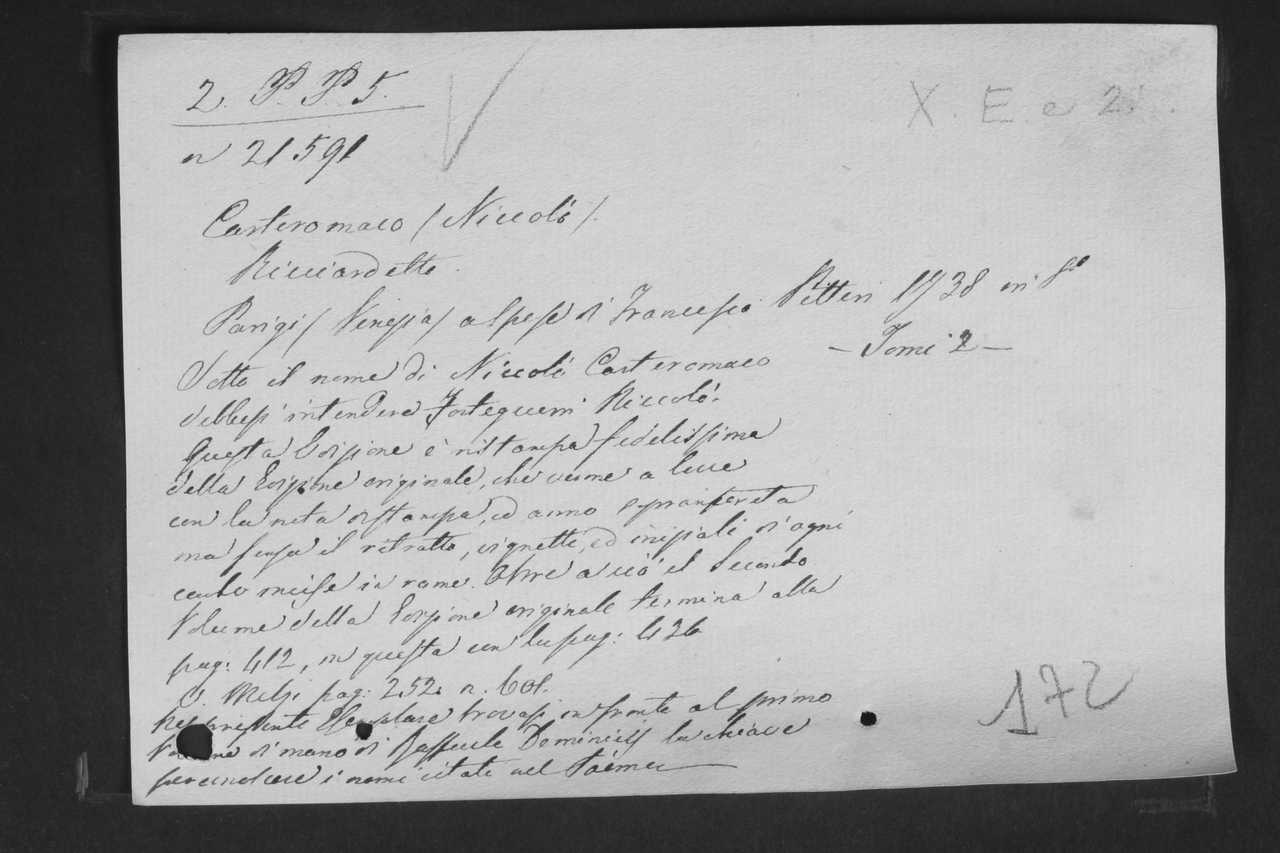 2. P. P. 5.
X. E. e 2.
n 21591
Carteromaco (Niccolò).
Ricciardetto.
Parigi (Venezia) a spese di Francesco Pitteri 1738 in 8º
– Tomi 2 –
Sotto il nome di Niccolò Carteromaco
debbesi intendere Forteguerri Niccolò.
Questa Edizione è ristampa fedelissima
della Edizione originale, che venne a luce
con la nota di stampa, ed anno
ma senza il ritratto, vignette, ed iniziali di ogni
canto incise in rame. Oltre a ciò il Secondo
Volume della Edizione originale termina alla
pag: 412, in questa con la pag: 426
V. Melzi pag: 252. n. 601.
Nel presente Esemplare trovasi in fronte al primo
Volume di mano di Raffaele Dominicis la chiave
per conoscere i nomi citati nel Poema
172